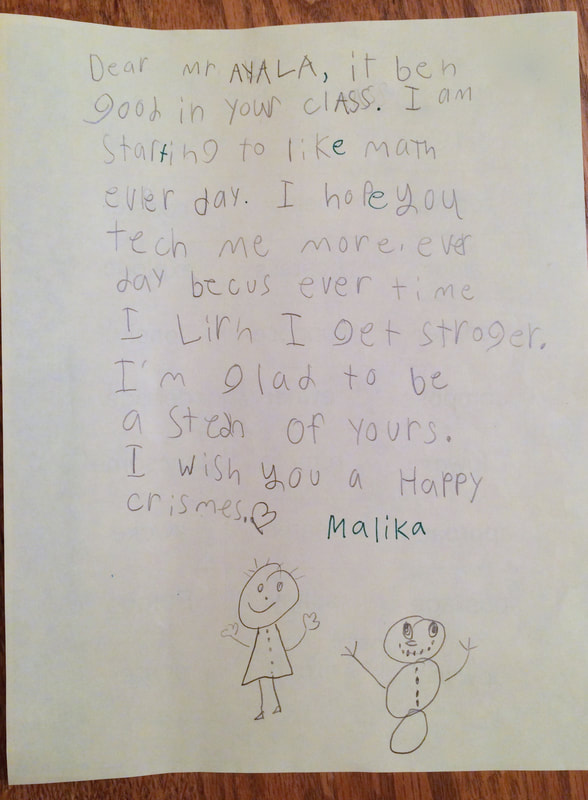 Dear mr AYALA, it ben
good in your clASS. I am
starting to like math
ever day. I hope you
tech me more. ever
day becus ever time
I Lirn I get stroger.
I'm glad to be
a stedn of yours.
I wish you a Happy
crismes.
Malika